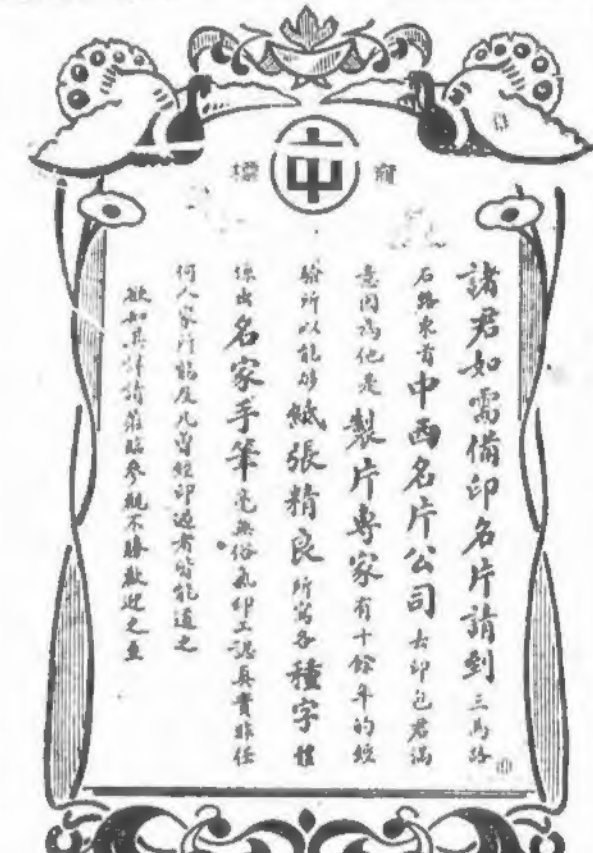 商標
中
諸君如需備印名片請到三馬路
石路東首中西名片公司去印包君滿
意因為他是製片專家有十餘年的經
驗所以能夠紙張精良所寫各種字體
悉出名家手筆毫無俗氣印工認真實非任
何人家所能及凡曾經印過者皆能道之
欲知其詳請蒞臨參觀不勝歡迎之至